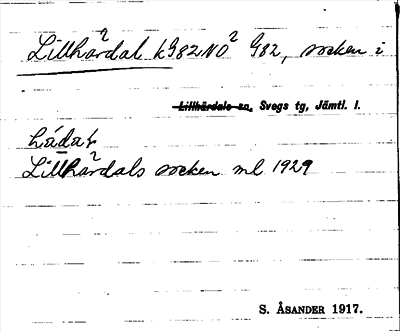 Lillhärdal kG82NO² G82, socken i
Lillhärdals sn, Svegs tg, Jämtl. l.
Lillhärdals socken ml 1929
S. ÅSANDER 1917.